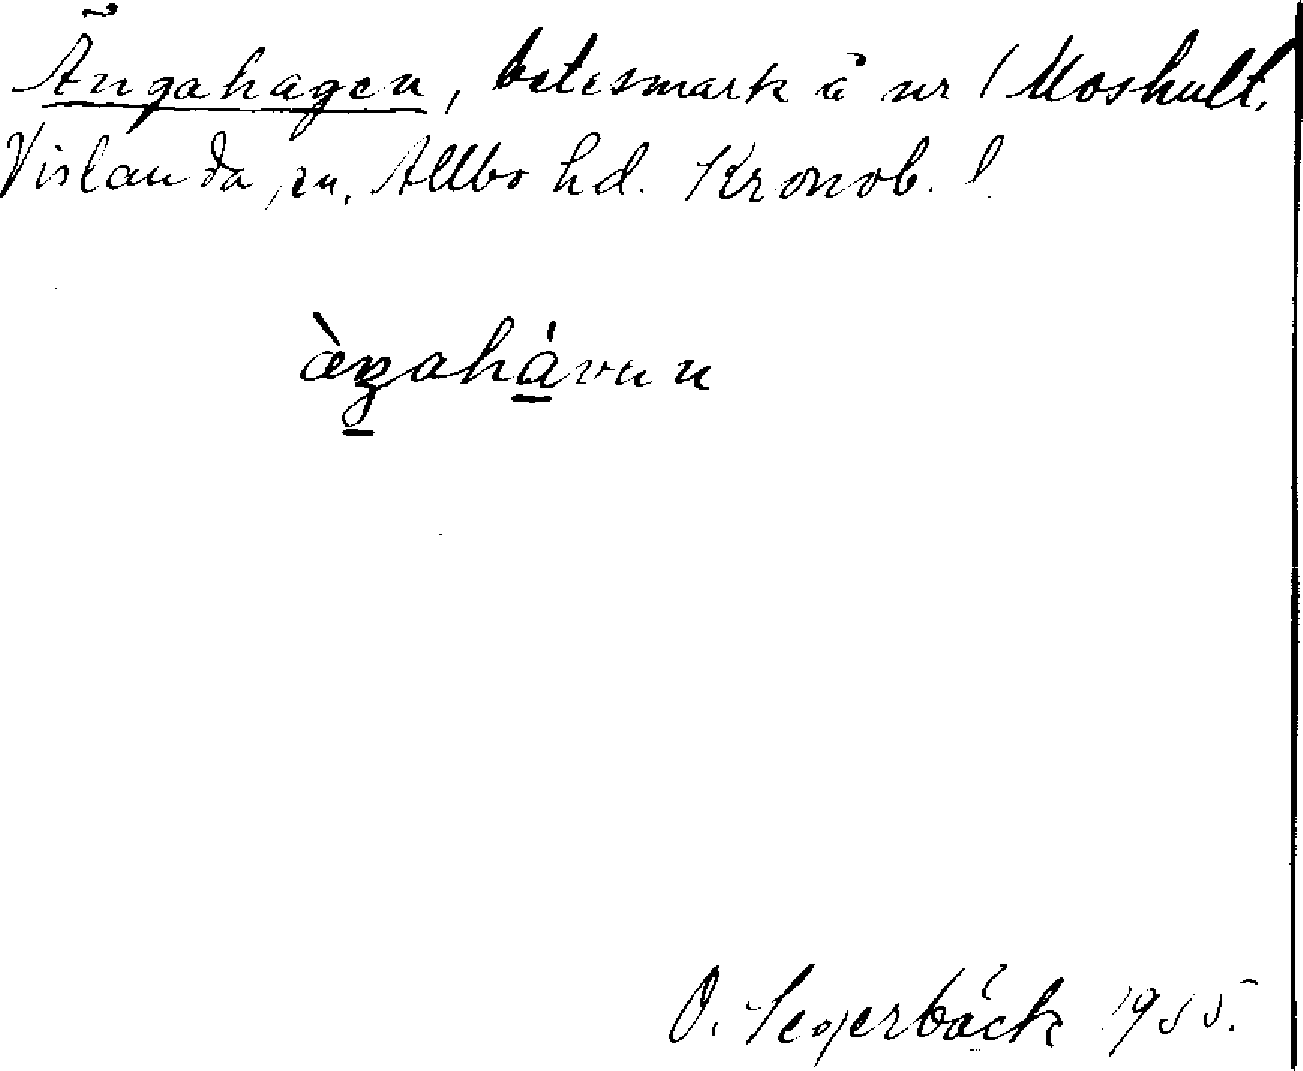 Ängahagen, betesmark å nr 1 Moshult,
Vislanda sn, Allbo hd. Kronob. l.
O. Segerbäck 1955.